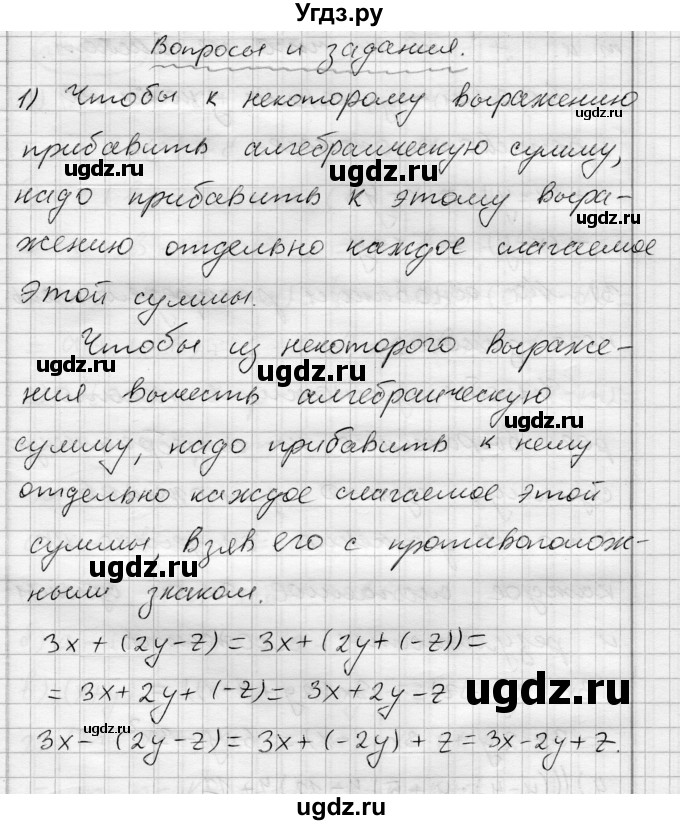 Угдз.ру
Вопросы и задания.
1) Чтобы к некоторому выражению
прибавить алгебраическую сумму,
надо прибавить к этому выра-
жению отдельно каждое слагаемое
этой суммы.
Чтобы из некоторого выраже-
ния вычесть алгебраическую
сумму, надо прибавить к нему
отдельно каждое слагаемое этой
суммы, взяв его с противополож-
ными знаком.
3x + (2y - z) = 3x + (2y + (-z)) =
= 3x + 2y + (-z) = 3x + 2y - z
3x - (2y - z) = 3x + (-2y) + z = 3x - 2y + z.
ugdz.ru
ugdz.ru
ugdz.ru
ugdz.ru
ugdz.ru
ugdz.ru
ugdz.ru
ugdz.ru
ugdz.ru
ugdz.ru
ugdz.ru
ugdz.ru
ugdz.ru